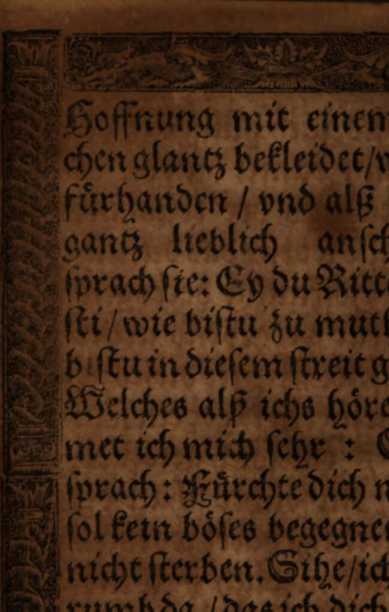 Hoffnung mit einem
chen glantz bekleidet/
fürhanden / vnd alß
gantz lieblich ansch
sprach sie: Ey du Ritte
sti/wie bistu zu muth
bistu in diesem streit g
Welches alß ichs höre
met ich mich sehr :
sprach: Fürchte dich n
sol kein böses begegne
nicht sterben. Sihe/ich